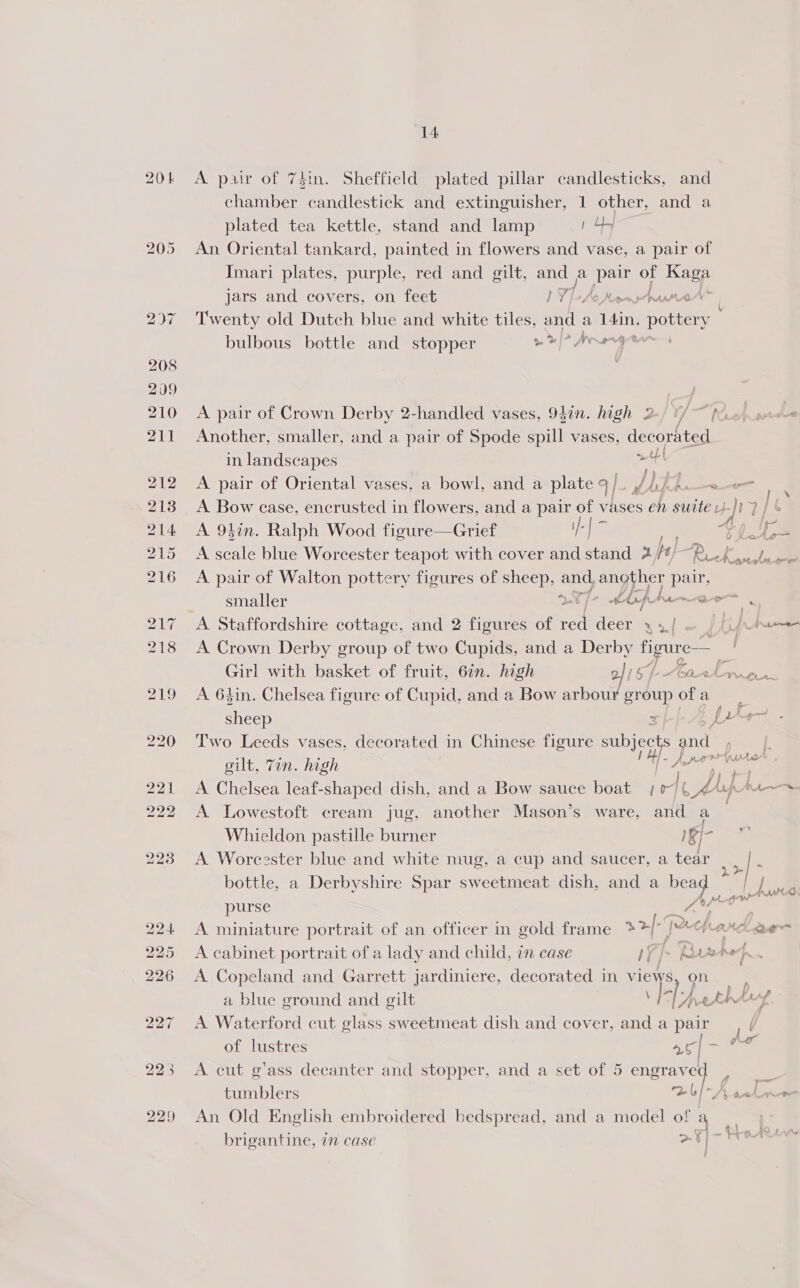 14
204 A pair of 7½in. Sheffield plated pillar candlesticks, and
chamber candlestick and extinguisher, 1 other, and a
plated tea kettle, stand and lamp
205 An Oriental tankard, painted in flowers and vase, a pair of
Imari plates, purple, red and gilt, and a pair of Kaga
jars and covers, on feet
207 Twenty old Dutch blue and white tiles, and a 14in. pottery
bulbous bottle and stopper
208
209
210 A pair of Crown Derby 2-handled vases, 9½in. high
211 Another, smaller, and a pair of Spode spill vases, decorated
in landscapes
212 A pair of Oriental vases, a bowl, and a plate
213 A Bow case, encrusted in flowers, and a pair of vases en suite
214 A 9½in. Ralph Wood figure—Grief
215 A scale blue Worcester teapot with cover and stand
216 A pair of Walton pottery figures of sheep, and another pair,
smaller
217 A Staffordshire cottage, and 2 figures of red deer
218 A Crown Derby group of two Cupids, and a Derby figure—
Girl with basket of fruit, 6in. high
219 A 6½in. Chelsea figure of Cupid, and a Bow arbour group of a
sheep
220 Two Leeds vases, decorated in Chinese figure subjects and
gilt, 7in. high
221 A Chelsea leaf-shaped dish, and a Bow sauce boat
222 A Lowestoft cream jug, another Mason's ware, and a
Whieldon pastille burner
223 A Worcester blue and white mug, a cup and saucer, a tear
bottle, a Derbyshire Spar sweetmeat dish, and a bead
purse
224 A miniature portrait of an officer in gold frame
225 A cabinet portrait of a lady and child, in case
226 A Copeland and Garrett jardiniere, decorated in views, on
a blue ground and gilt
227 A Waterford cut glass sweetmeat dish and cover, and a pair
of lustres
228 A cut glass decanter and stopper, and a set of 5 engraved
tumblers
229 An Old English embroidered bedspread, and a model of a
brigantine, in case